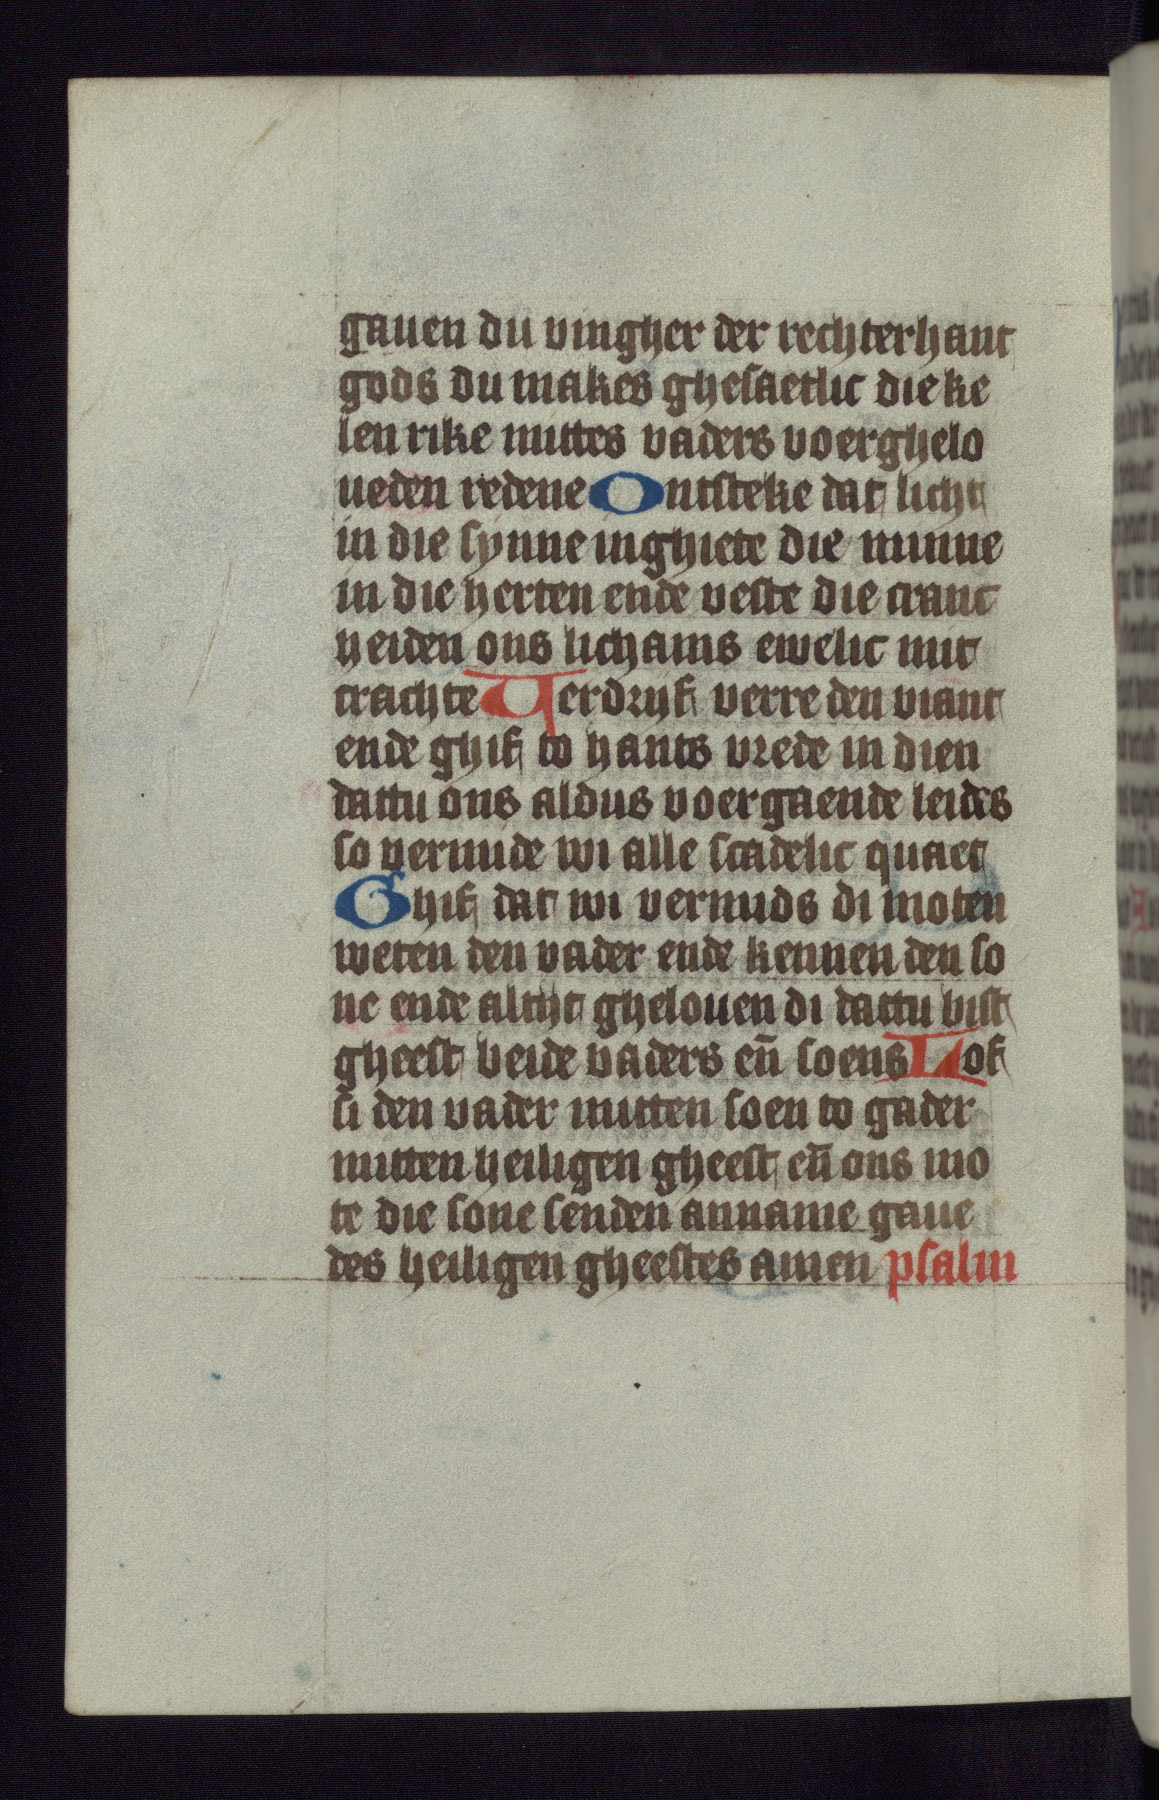 gauen du vingher der rechterhant
gods du makes ghesaetlic die ke
len rike mittes vaders voerghelo
ueden redene Ontsteke dat licht
in die synne inghiete die minne
in die herten ende veste die cranc
heiden ons lichams ewelic mit
crachte Uerdrijf verre den viant
ende ghif to hants vrede in dien
dattu ons aldus voergaende leides
so vermide wi alle scadelic quaet
Ghif dat wi vermids di moten
weten den vader ende kennen den so
ne ende altijt ghelouen di dattu bist
gheest beide vaders en̄ soens Lof
si den vader mitten soen to gader
mitten heiligen gheest en̄ ons mo
te die sone senden anname gaue
des heiligen gheestes amen psalm